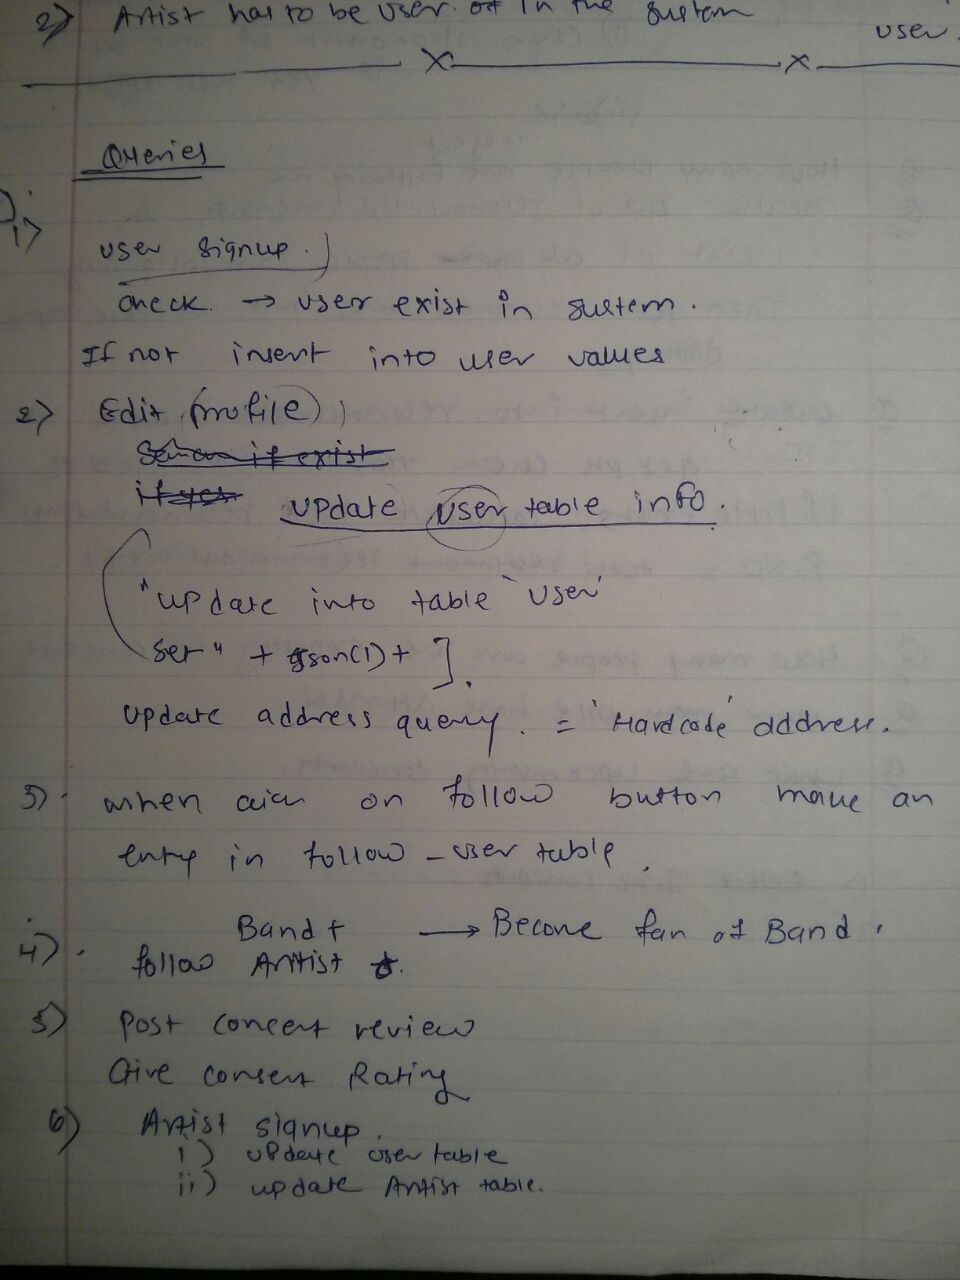 2) Artist has to be user of in the system
user.
Queries
1)
user signup.
check → user exist in system.
If not insert into user values
2) Edit (profile)
if exist
if yes update user table info.
"update into table 'user'
set" + gson(1) + ].
update address query. = 'Hardcode' address.
3) when click on follow button make an
entry in follow_user table.
Band + → Become fan of Band.
4) follow Artist
5) Post concert review
Give concert Rating
6) Artist signup.
i) update user table
ii) update Artist table.